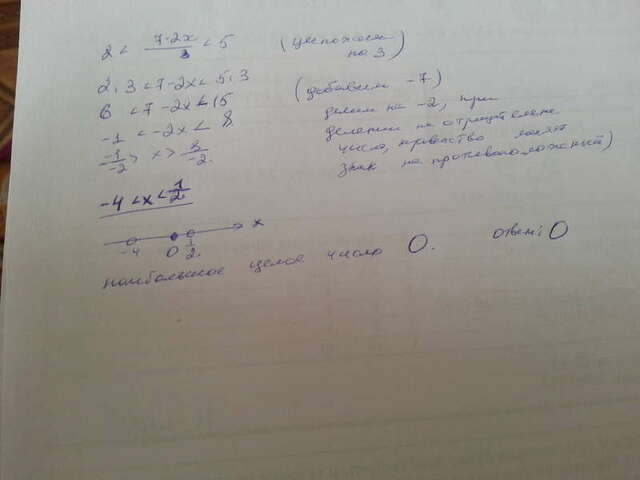 2 < 7-2x/3 < 5 (умножаем на 3)
2·3 < 7-2x < 5·3 (добавим -7)
6 < 7-2x < 15 делим на -2, при
-1 < -2x < 8 делении на отрицательное
-1/-2 > x > 8/-2 число, неравенство меняет
знак на противоположный)
-4 < x < 1/2
-4 0 1/2 x
наибольшее целое число 0. ответ: 0